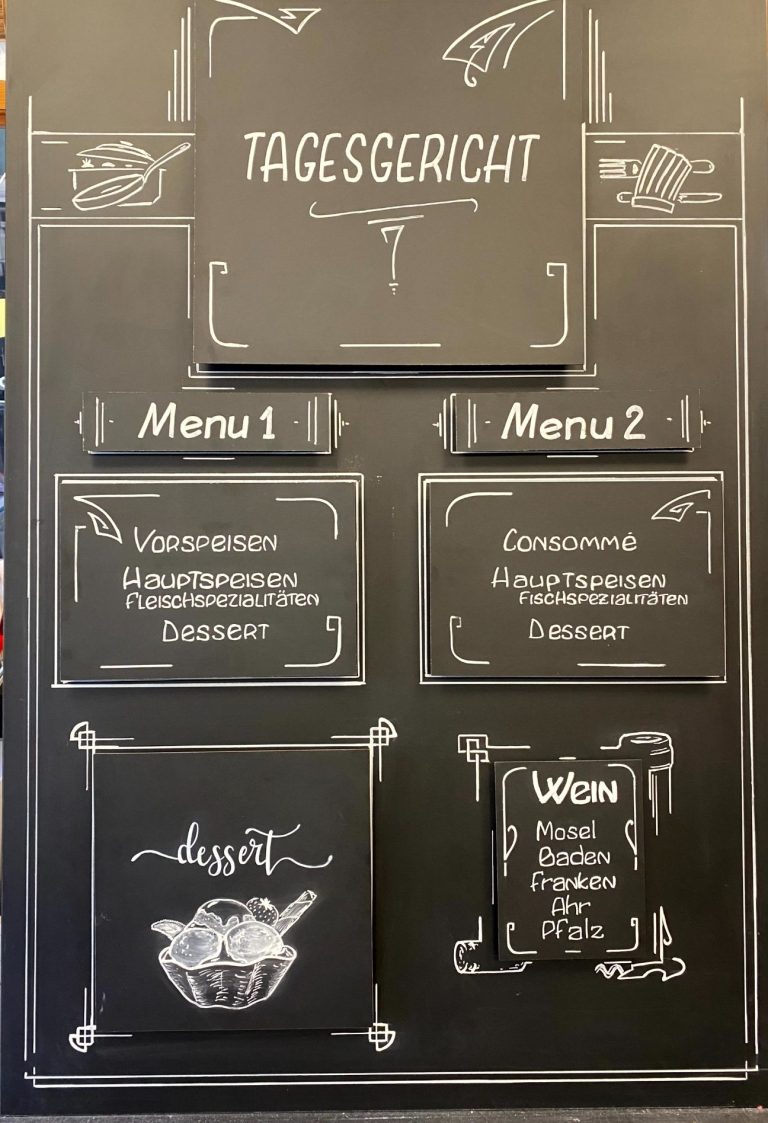 TAGESGERICHT
7
Menu 1
Vorspeisen
Hauptspeisen
Fleischspezialitäten
Dessert
Menu 2
Consommé
Hauptspeisen
Fischspezialitäten
Dessert
dessert
Wein
Mosel
Baden
Franken
Ahr
Pfalz